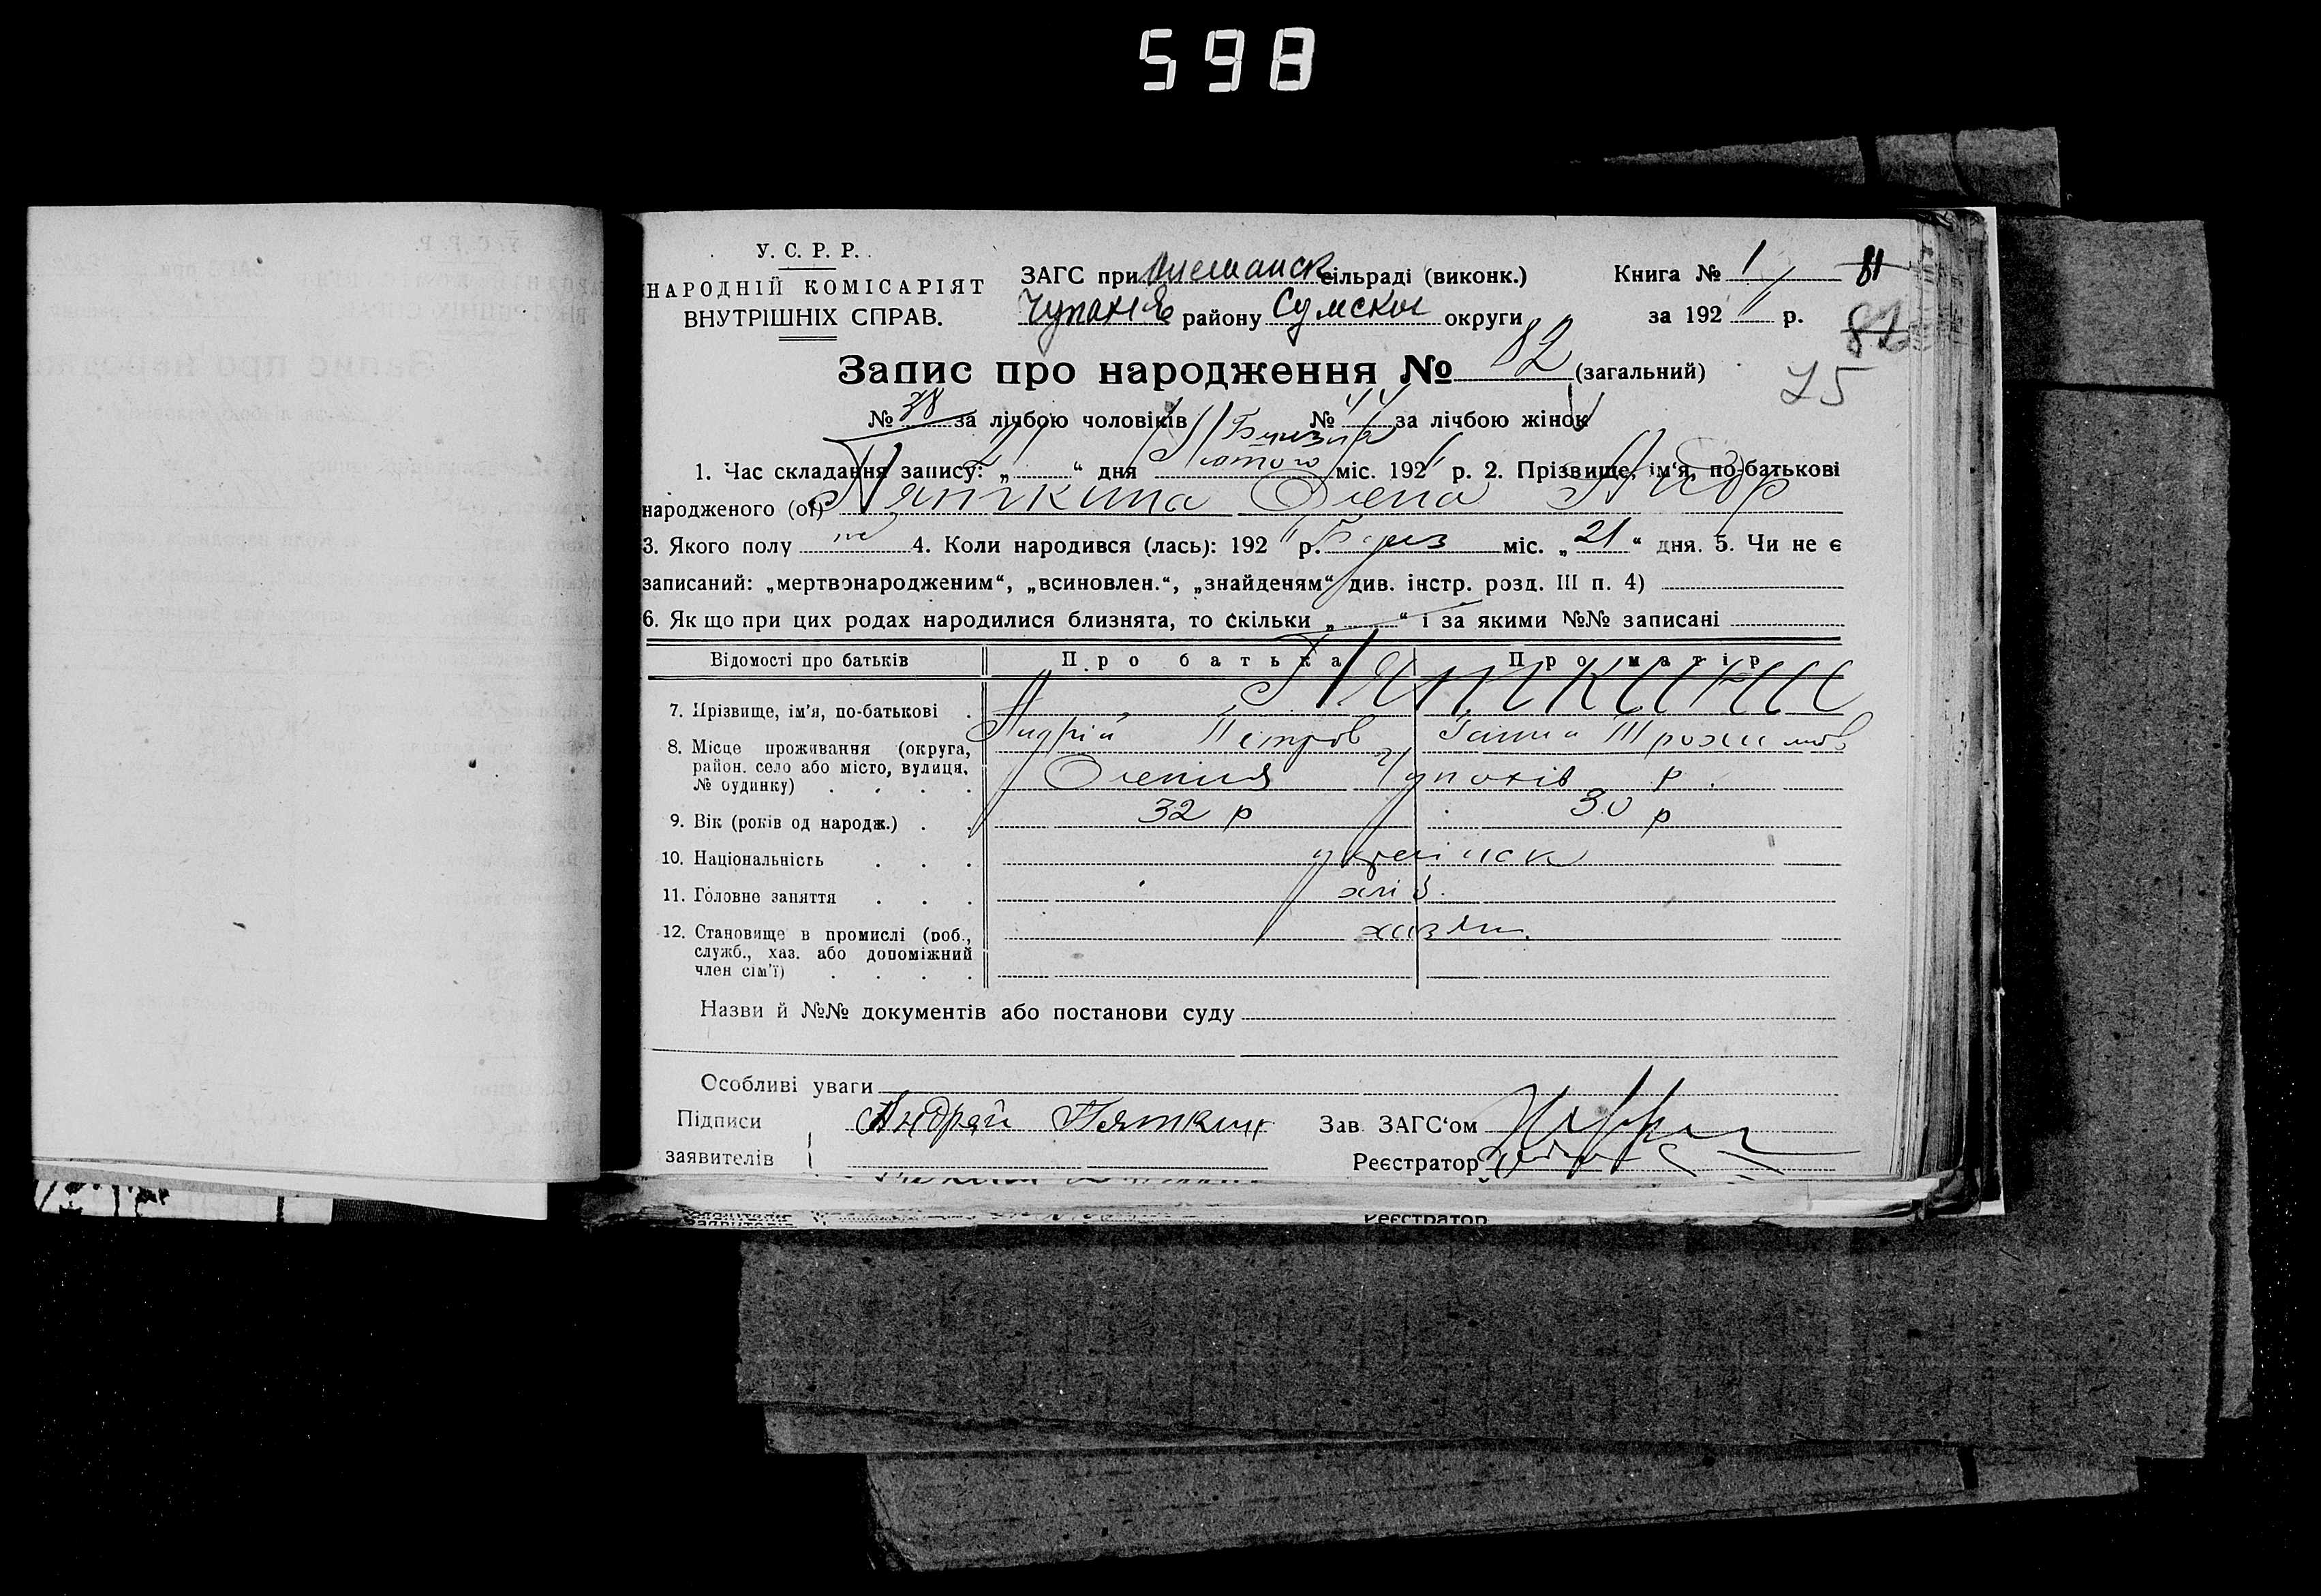 598
У. С. Р. Р.
НАРОДНІЙ КОМІСАРІЯТ
ВНУТРІШНІХ СПРАВ.
ЗАГС при сільраді (виконк.)
району Сумской округи
Книга № 1
81
за 192 р.
82
75
Запис про народження № 82 (загальний)
№ 38 за лічбою чоловіків № 44 за лічбою жінок
Березня
1. Час складання запису: „ 21 “ дня лютого міс. 192 р. 2. Прізвище, ім'я, по-батькові
народженого (ої) Пяткина Олена Андр
3. Якого полу ж 4. Коли народився (лась): 192 р. Берез міс. „ 21 “ дня. 5. Чи не є
записаний: „мертвонародженим“, „всиновлен.“, „знайденям“ див. інстр. розд. III п. 4)
6. Як що при цих родах народилися близнята, то скільки „ “ і за якими №№ записані
Відомості про батьків Про батька Про матір
Пяткини
7. Прізвище, ім'я, по-батькові
Андрій Петров Ганна Трохимов
8. Місце проживання (округа, район. село або місто, вулиця, № будинку)
Чупахів р.
9. Вік (років од народж.) 32 р 30 р
10. Національність українск
11. Головне заняття хліб.
12. Становище в промислі (роб., служб., хаз. або допоміжний член сім'ї) хазяи.
Назви й №№ документів або постанови суду
Особливі уваги
Підписи Андрей Пяткин Зав. ЗАГС'ом
заявителів Реєстратор
Реєстратор